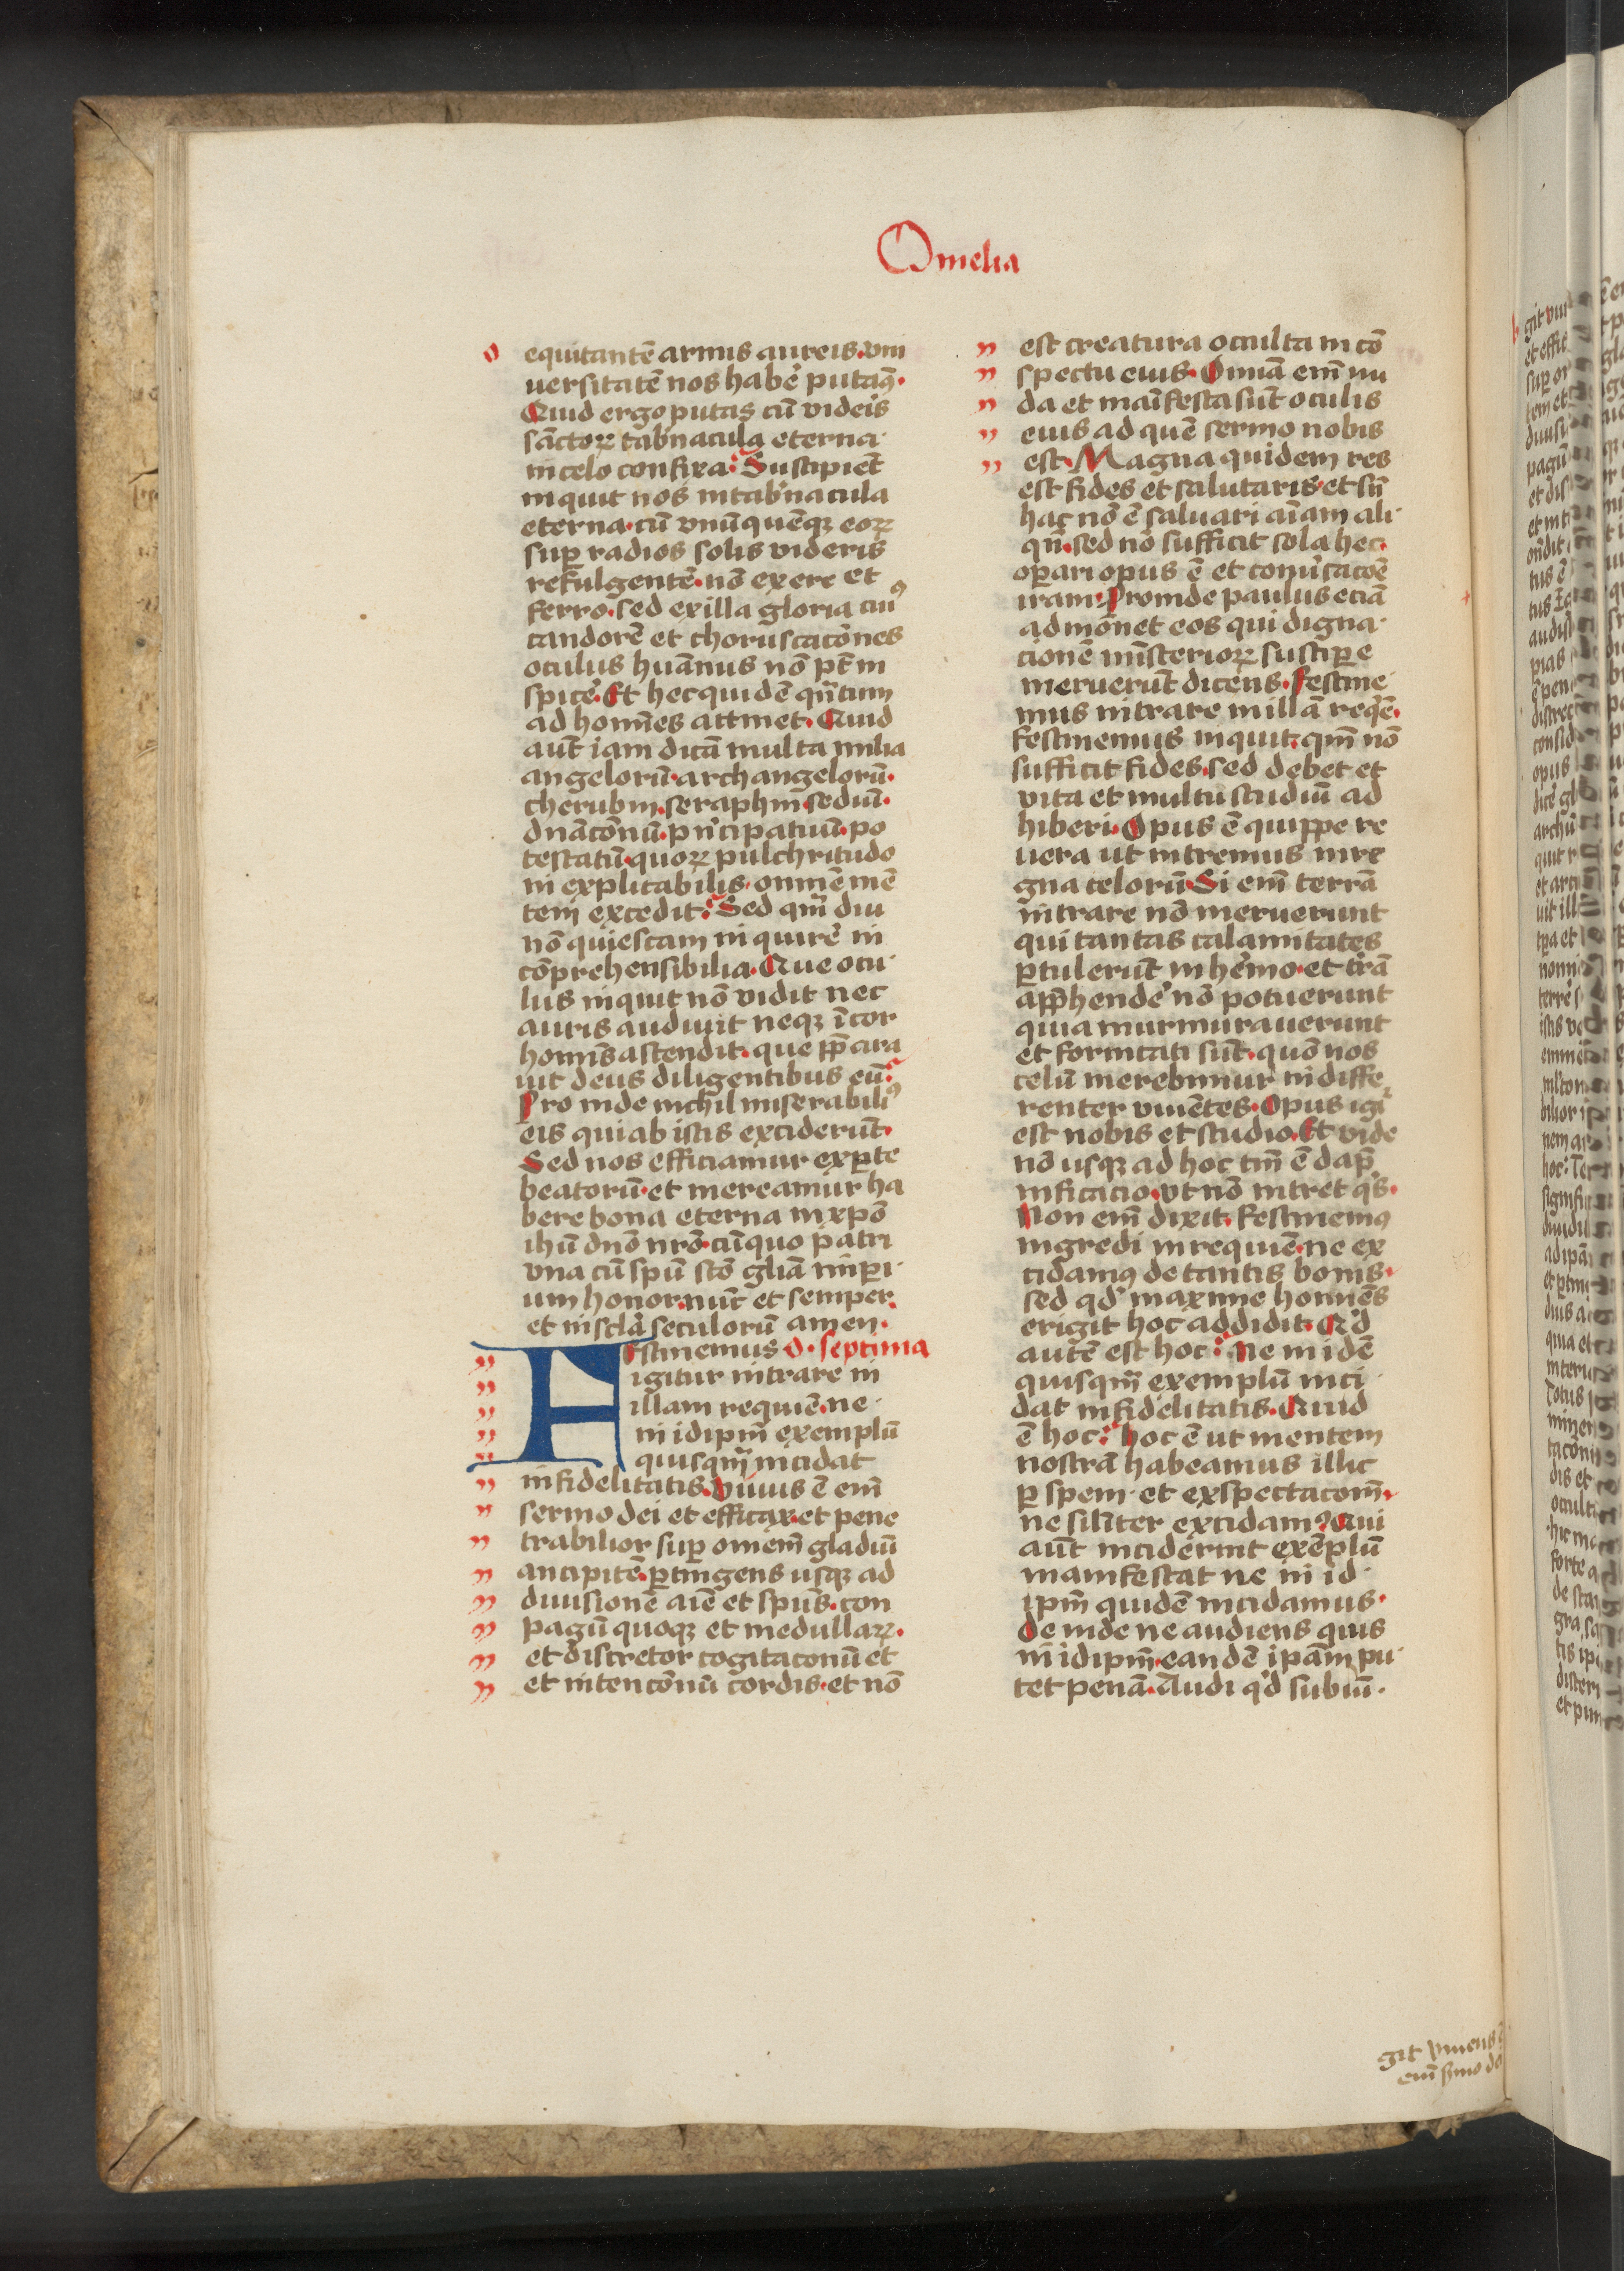 Omelia
equitantē armis aureis. vni
uersitatē nos habe᷒ putaꝫ.
Quid ergo putas cū videis
sāctoꝝ tab᷒nacula eterna
in celo confixa: Suscipiēt
inquit nos in tab᷒nacula
eterna. cū vnūquēqꝫ eoꝝ
suꝑ radios solis videris
refulgentē. nō ex ere et
ferro. sed ex illa gloria cuiꝰ
candorē et choruscacōnes
oculus huānus nō pt̄ in
spice᷒. Et hec quidē qn̄tum
ad homīes attinet. Quid
aut̄ iam dicā multa milia
angelorū. archangelorū.
cherubin. seraphin̄. sediū.
dn̄acōnū. pn᷒cipatuū. po
testatū. quoꝝ pulchritudo
in explicabilis. omnē mē
tem excedit: Sed qm̄ diu
nō quiescam in quire᷒ in
cōprehensibilia. Que ocu
lus inquit nō vidit nec
auris audiuit neqꝫ ī cor
homīs ascendit. que pp̄ara
uit deus diligentibus eū:
Pro inde nichil miserabiliꝰ
eis qui ab istis exciderūt.
Sed nos efficiamur ex ꝑte
beatorū. et mereamur ha
bere bona eterna in xpō
ihū dnō nrō. cū quo patri
vna cū spū scō gliā imꝑi
um honor. nūc et semper.
et in scl̄a seculorū amen.
Festinemus O. septima
igitur intrare in
illam requiē. ne
in idipm̄ exemplū
quisqm̄ incidat
infidelitatis. Viuus ē em̄
sermo dei et efficax. et pene
trabilior suꝑ omem̄ gladiū
ancipitē. ꝑtingens usqꝫ ad
diuisionē aīe et spūs. con
pagū quoqꝫ et medullaꝝ.
et discretor cogitaconū et
et intencōnū cordis. et nō
est creatura occulta in cō
spectu eius. Omīa em̄ nu
da et maīfesta sūt oculis
eius ad quē sermo nobis
est. Magna quidem res
est fides et salutaris. et sn̄
hac nō ē saluari aīam ali
qn̄. sed nō sufficit sola hec.
oꝑari opus ē et conu᷒sacoē
iram. Proinde paulus eciā
admōnet eos qui digna
cionē mīsterioꝝ susciꝑe
meruerūt dicens. Festine
mus intrare in illā req᷒ē.
Festinemus inquit. qm̄ nō
sufficit fides. sed debet et
vita et multū studiū ad
hiberi. Opus ē quippe re
uera ut intremus in re
gna celorū. Si em̄ terrā
intrare nō meruerunt
qui tantas calamitates
ꝑtulerūt in he᷒mo. et t᷒rā
app̄hende᷒ nō potuerunt
quia murmurauerunt
et fornicati sūt. quō nos
celū merebimur in diffe
renter viuētes. Opus igr̄
est nobis et studio. Et vide
nō usqꝫ ad hoc tm̄ ē dāp
nificacio. vt nō intret q᷒s.
Non em̄ dixit. Festinemꝰ
ingredi in requiē. ne ex
cidamꝰ de tantis bonis.
sed qd᷒ maxime homīes
erigit hoc addidit. Qd᷒
autē est hoc: Ne in idē
quisqm̄ exemplū inci
dat infidelitatis. Quid
ē hoc: hoc ē ut mentem
nostrā habeamus illic
ꝑ spem. et exspectacom̄.
ne silīter excidamꝰ. Qui
aūt inciderint exēplū
manifestat ne in id
ipm̄ quidē incidamus.
De inde ne audiens quis
in idipm̄. eandē ipām pu
tet penā. Audi qd᷒ subiū.
git viuens
em̄ s᷒mo